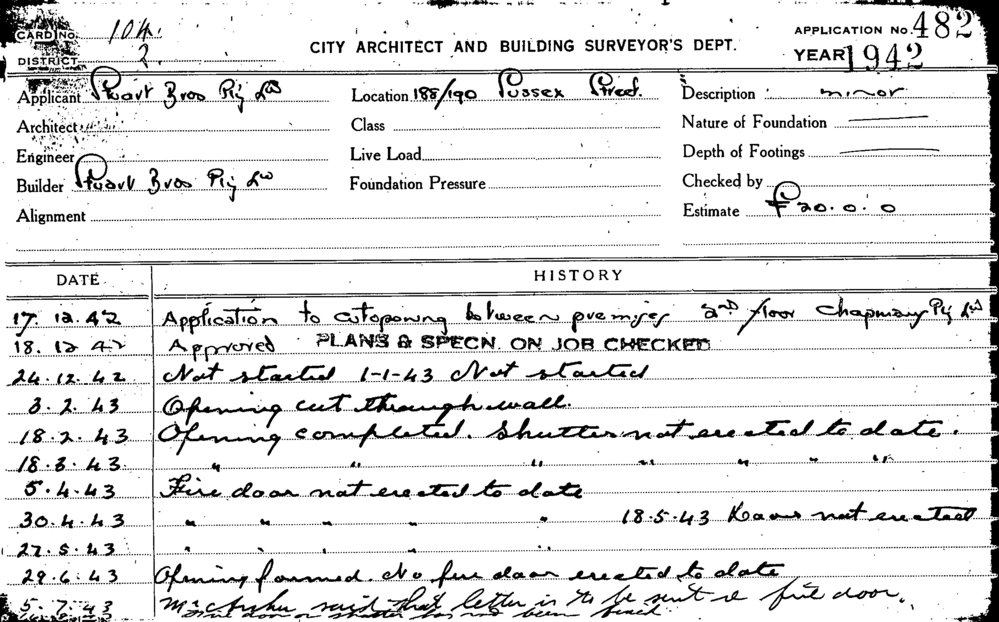 CARD No. 104.
DISTRICT 2.
CITY ARCHITECT AND BUILDING SURVEYOR'S DEPT.
APPLICATION No. 482
YEAR 1942
Applicant Stuart Bros Pty Ltd
Location 188/190 Sussex Street.
Description minor
Architect
Class
Nature of Foundation —
Engineer
Live Load
Depth of Footings —
Builder Stuart Bros Pty Ltd
Foundation Pressure
Checked by
Alignment
Estimate £20.0.0
DATE
HISTORY
17.12.42 Application to cut opening between premises 2nd floor Chapman Pty Ltd
18.12.42 Approved PLANS & SPECN. ON JOB CHECKED
24.12.42 Not started 1-1-43 Not started
3.2.43 Opening cut through wall.
18.2.43 Opening completed. Shutter not erected to date.
18.3.43 " " " " " "
5.4.43 Fire door not erected to date
30.4.43 " " " " " 18.5.43 Doors not erected
27.5.43 " " " " "
29.6.43 Opening formed. No fire door erected to date
5.7.43 said that letter is to be sent re fire door.
fire door or shutter has not been fixed